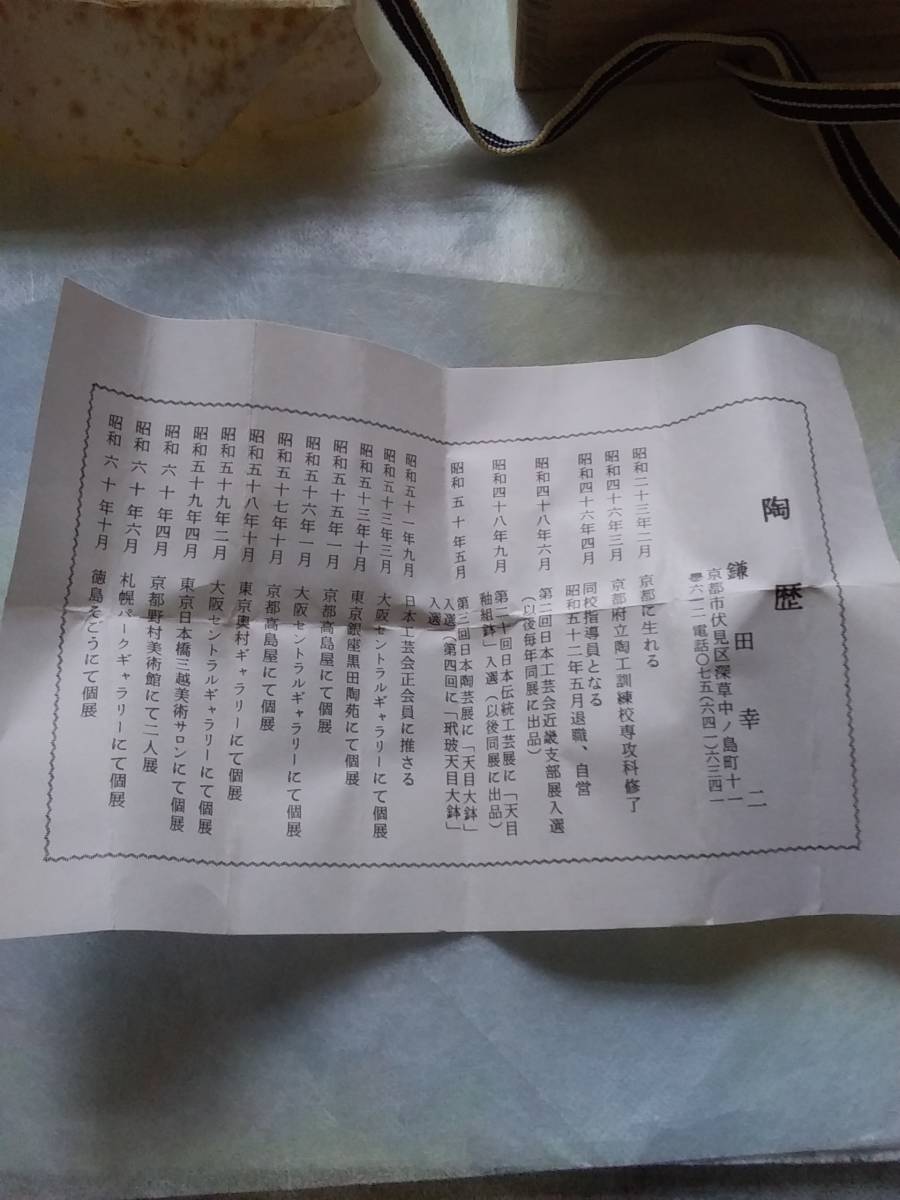 陶歴
鎌田幸二
京都市伏見区深草中ノ島町十一
〒六一二電話〇七五(六四一)六三四一
昭和二十三年二月 京都に生れる
昭和四十六年三月 京都府立陶工訓練校専攻科修了
昭和四十六年四月 同校指導員となる
昭和五十二年五月退職、自営
昭和四十八年六月 第二回日本工芸会近畿支部展入選
(以後毎年同展に出品)
昭和四十八年九月 第二十回日本伝統工芸展に「天目
釉組鉢」入選(以後同展に出品)
昭和五十年五月 第三回日本陶芸展に「天目大鉢」
入選(第四回に「玳玻天目大鉢」
入選
昭和五十一年九月 日本工芸会正会員に推さる
昭和五十三年三月 大阪セントラルギャラリーにて個展
昭和五十三年十月 東京銀座黒田陶苑にて個展
昭和五十五年一月 京都高島屋にて個展
昭和五十六年一月 大阪セントラルギャラリーにて個展
昭和五十七年十月 京都高島屋にて個展
昭和五十八年十月 東京奥村ギャラリーにて個展
昭和五十九年二月 大阪セントラルギャラリーにて個展
昭和五十九年四月 東京日本橋三越美術サロンにて個展
昭和六十年四月 京都野村美術館にて二人展
昭和六十年六月 札幌パークギャラリーにて個展
昭和六十年十月 徳島そごうにて個展